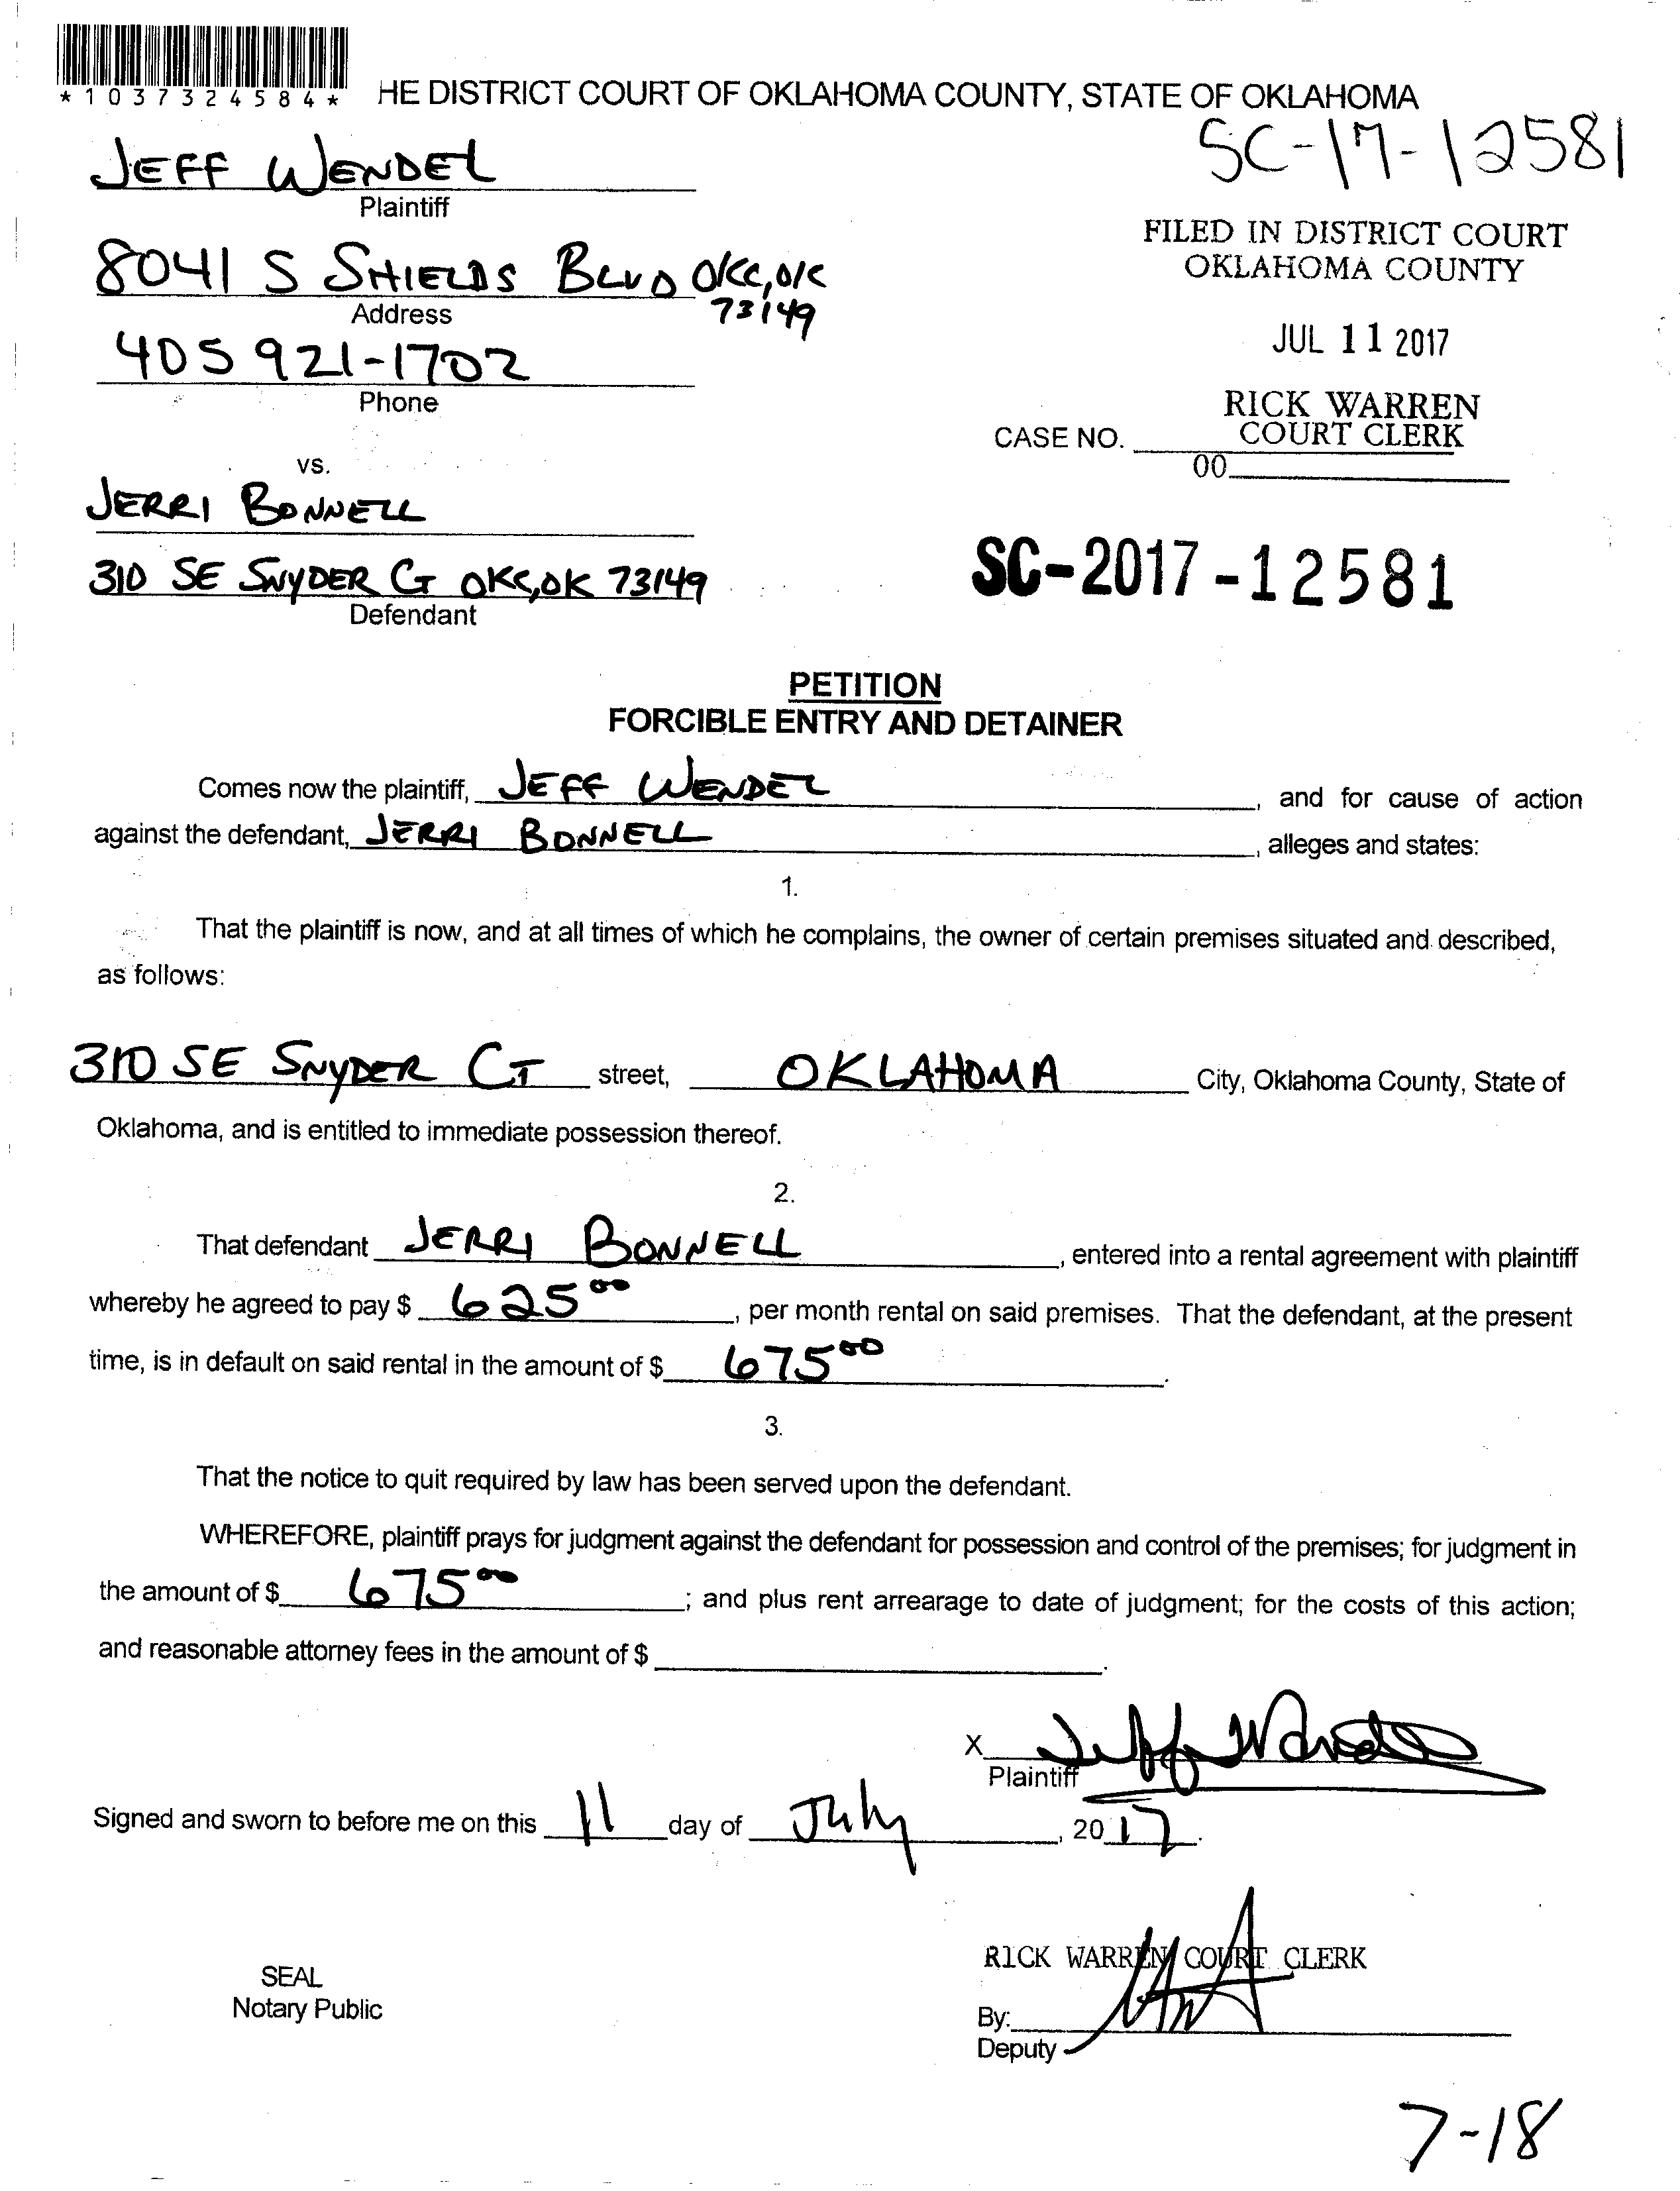 *1037324584*
HE DISTRICT COURT OF OKLAHOMA COUNTY, STATE OF OKLAHOMA
SC-17-12581
JEFF WENDEL
Plaintiff
FILED IN DISTRICT COURT
OKLAHOMA COUNTY
8041 S SHIELDS BLVD OKC, OK
73149
Address
JUL 11 2017
405 921-1702
Phone
RICK WARREN
CASE NO. COURT CLERK
00
vs.
JERRI BONNELL
310 SE SNYDER CT OKC, OK 73149
Defendant
SC-2017-12581
PETITION
FORCIBLE ENTRY AND DETAINER
Comes now the plaintiff, JEFF WENDEL, and for cause of action
against the defendant, JERRI BONNELL, alleges and states:
1.
That the plaintiff is now, and at all times of which he complains, the owner of certain premises situated and described,
as follows:
310 SE SNYDER CT street, OKLAHOMA City, Oklahoma County, State of
Oklahoma, and is entitled to immediate possession thereof.
2.
That defendant JERRI BONNELL, entered into a rental agreement with plaintiff
whereby he agreed to pay $ 625 00, per month rental on said premises. That the defendant, at the present
time, is in default on said rental in the amount of $ 675 00.
3.
That the notice to quit required by law has been served upon the defendant.
WHEREFORE, plaintiff prays for judgment against the defendant for possession and control of the premises; for judgment in
the amount of $ 675 00; and plus rent arrearage to date of judgment; for the costs of this action;
and reasonable attorney fees in the amount of $ .
X Jeff Wendel
Plaintiff
Signed and sworn to before me on this 11 day of July, 2017.
RICK WARREN COURT CLERK
SEAL
Notary Public
By:
Deputy
7-18